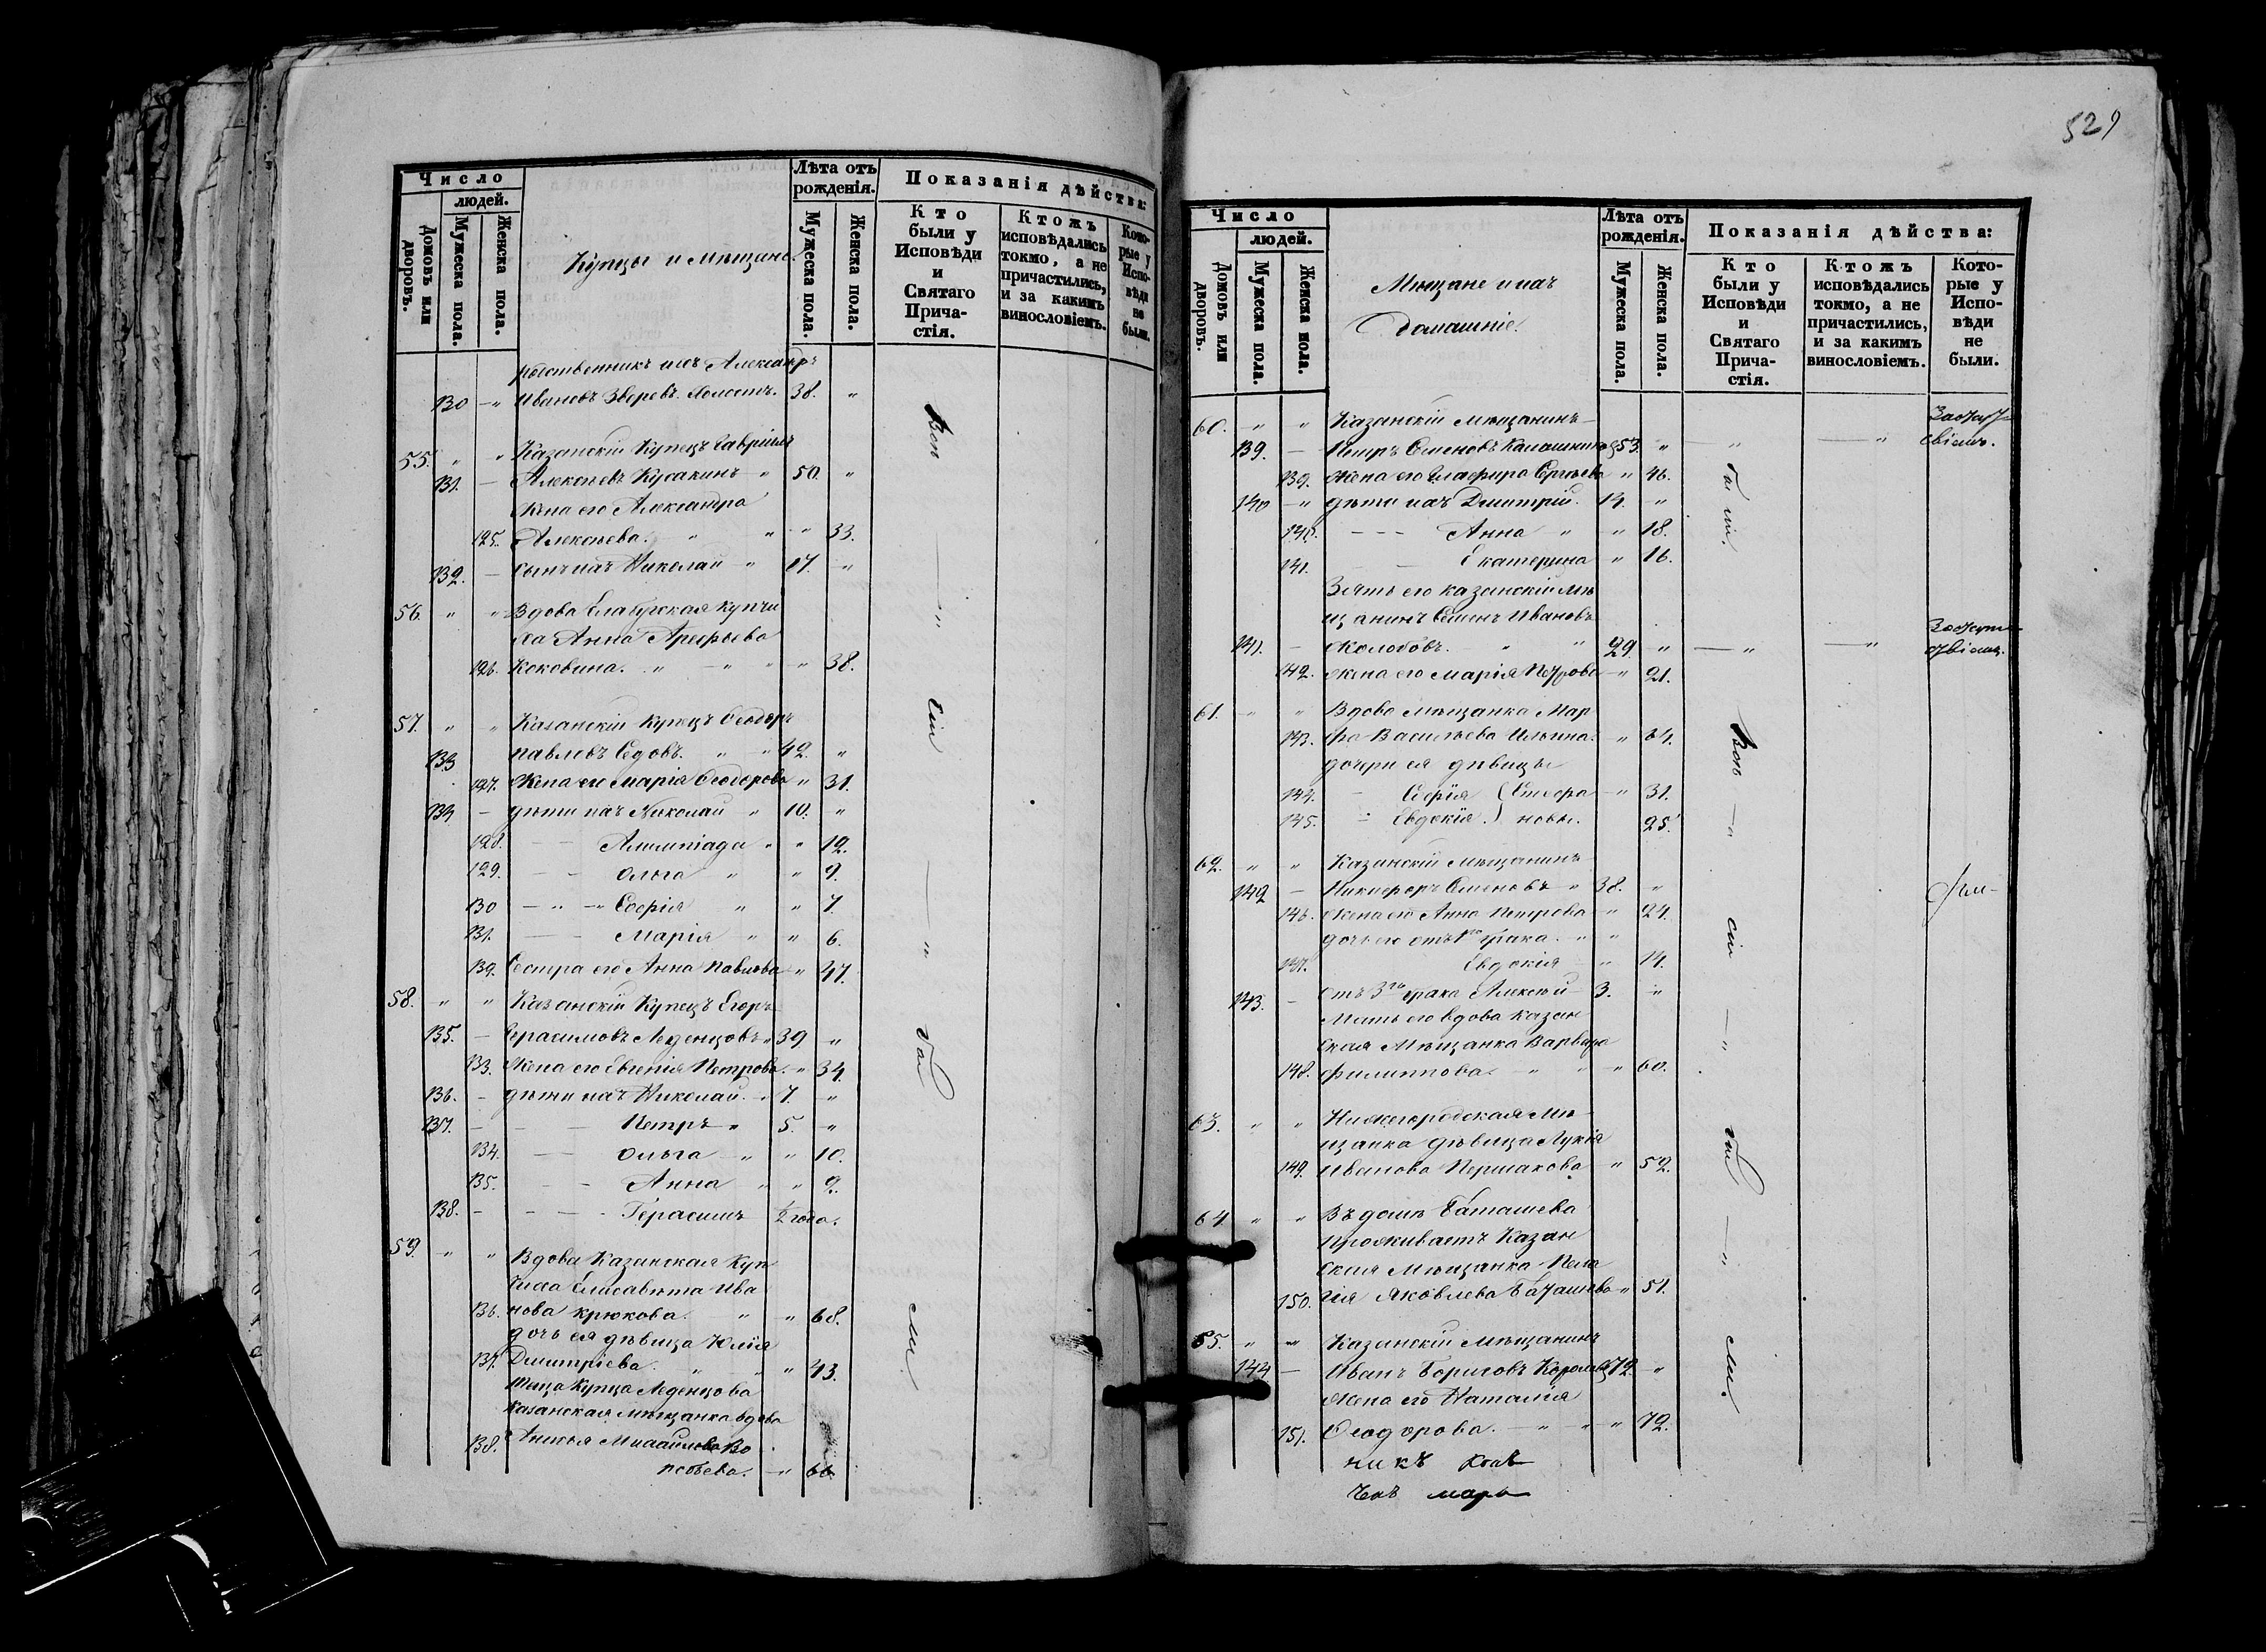 Число
людей.
Домовъ или дворовъ.
Мужеска пола.
Женска пола.
Купцы и Мѣщане.
Лѣта отъ рожденія.
Мужеска пола.
Женска пола.
Показанія дѣйства:
Кто были у Исповѣди и Святаго Причастія.
Ктожъ исповѣдались токмо, а не причастились, и за какимъ винословіемъ.
Которые у Исповѣди не были.
родственникъ ихъ Александръ
130 — „ Ивановъ Зверевъ. Холостъ. 38. „
55. „ „ Казанскій Купецъ Гавріилъ
131. — Алексѣевъ Кусакинъ „ 50. „
Жена его Александра
125. Алексѣева. „ „ „ 33.
132. — Сынъ ихъ Николай „ 17. „
56. „ „ Вдова Елабужская купчи
ха Анна Арефьева
126. Коковина. „ — „ „ „ 38.
57. „ „ Казанскій Купецъ Ѳеодоръ
133 Павловъ Седовъ. „ „ 42. „
127. Жена его Марія Ѳеодорова „ 31.
134 — дѣти ихъ Николай „ 10. „
128. — — Алимпіада „ „ 12.
129. — — Ольга „ „ 9.
130 — „ — „ Софія „ „ 7.
131. — — Марія „ „ 6.
132. Сестра его Анна Павлова „ 47.
58. „ „ Казанскій Купецъ Егоръ
135. — Герасимовъ Леденцовъ „ 39 „
133. Жена его Евгенія Петрова. „ 34.
136. — дѣти ихъ Николай. „ 7 „
137. — — — Петръ „ 5. „
134. — — Ольга — „ „ 10.
135. — — Анна „ „ 9.
138. — — — Герасимъ ½ года.
59. „ „ Вдова Казанская Куп
чиха Елисавета Ива
136. нова Крюкова. „ „ 68.
дочь ея дѣвица Юлія
137. Дмитріева. „ „ „ 43.
Теща Купца Леденцова
Казанская Мѣщанка вдова
138. Михайлова Во
— „ 66
Всѣ — „ сіи — „ бы ли
529
Число
людей.
Домовъ или дворовъ.
Мужеска пола.
Женска пола.
Мѣщане и ихъ
домашніе.
Лѣта отъ рожденія.
Мужеска пола.
Женска пола.
Показанія дѣйства:
Кто были у Исповѣди и Святаго Причастія.
Ктожъ исповѣдались токмо, а не причастились, и за какимъ винословіемъ.
Которые у Исповѣди не были.
60. „ „ Казанскій Мѣщанинъ
139. — Петръ Семеновъ Калашниковъ 53. „ — „ — „ За отсут
ствіемъ.
139. Жена его Глафира Сергѣева „ 46.
140 — „ дѣти ихъ Дмитрій. 14. „
140. — — — Анна „ „ 18.
141. — — Екатерина „ 16.
Зять его казанскій мѣ
щанинъ Семенъ Ивановъ
141. — Колобовъ. „ „ 29. „ — „ — „ За отсут
ствіемъ.
142. Жена его Марія Петрова — „ 21.
61. „ „ Вдова мѣщанка Мар
143. фа Васильева Ильина. „ 64.
дочери ея дѣвицы
144. — Софія (Стефа — „ 31.
145. — Евдокія.) новы. 25.
62. „ „ Казанскій Мѣщанинъ
142 — Никифоръ Семеновъ „ 38. „
146. Жена его Анна Петрова „ 24.
дочь его отъ 1го брака. „ „
147. Евдокія „ 14.
143. — отъ 3го брака Алексѣй 3. „
Мать его вдова Казан
ская Мѣщанка Варвара
148. Филиппова. — „ „ „ 60.
63. „ „ Нижегородская Мѣ
щанка дѣвица Лукія
149. Иванова Першакова „ 52.
64. „ „ Въ домѣ Баташева
Проживаетъ Казан
ская Мѣщанка Пела
150. гія Яковлева Баташева „ 51.
65. „ „ Казанскій Мѣщанинъ
144 — Иванъ Борисовъ 72. „
Жена его Наталія
151. Ѳеодорова. — „ — „ „ 72.
бы ли.
Всѣ — „ сіи — „ бы — „ ли.